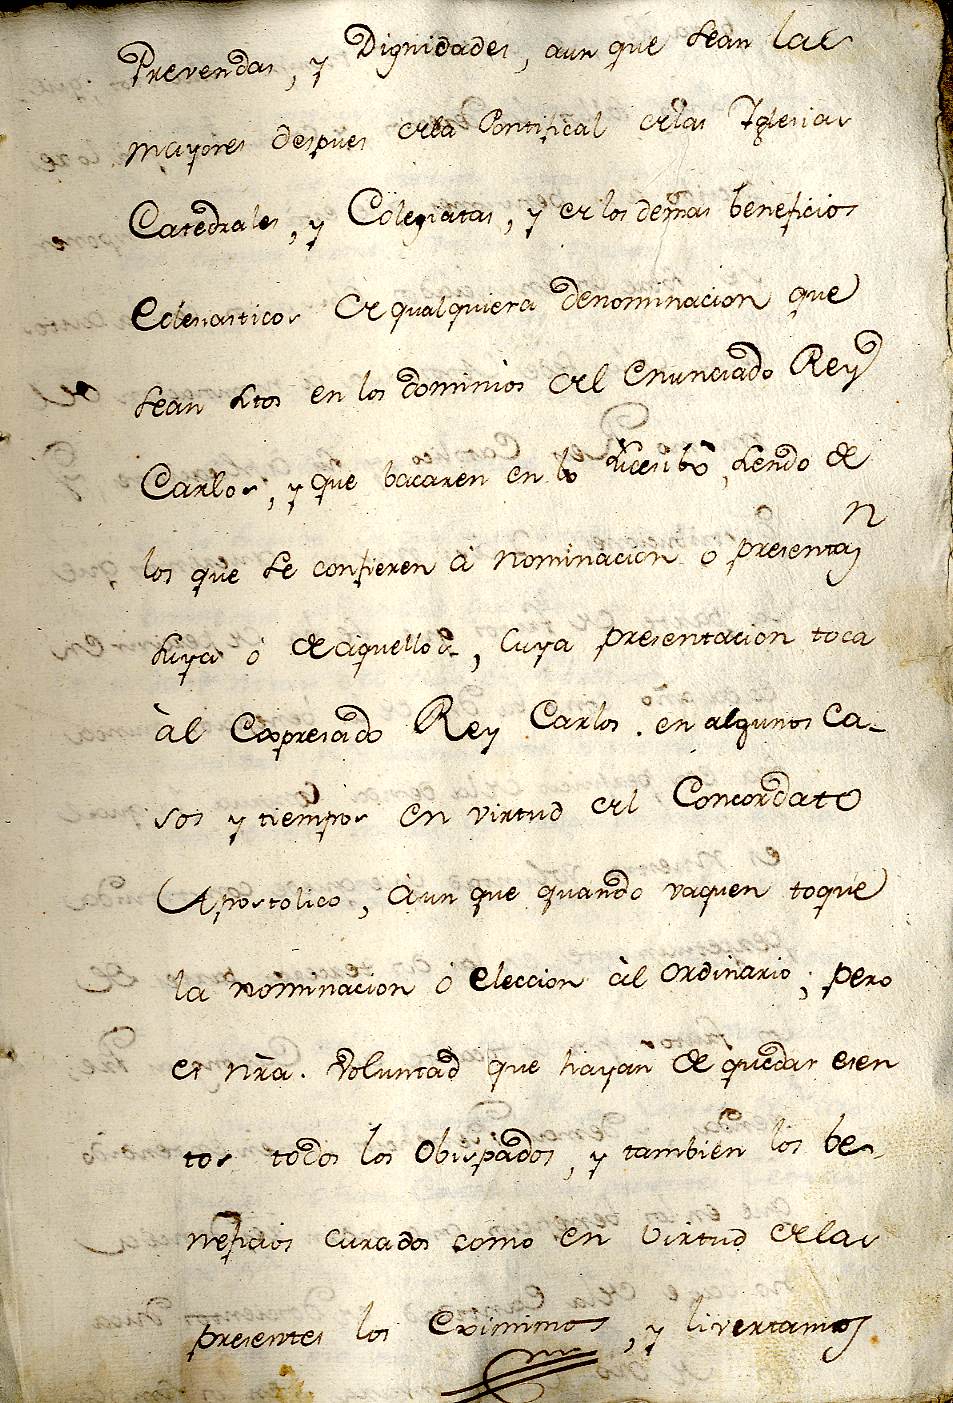 Prevendas, y Dignidades, aun que sean las
mayores despues dela Pontifical delas Yglesias
Catedrales, y Colegiatas, y de los demas beneficios
Eclesiasticos de qualquiera denominacion que
sean sitos en los dominios del enunciado Rey
Carlos, y que bacaren en lo subcesibo, siendo de
los que se confieren â nominacion o presentaz.n
suya ó de aquellos, cuya presentacion toca
àl Expresado Rey Carlos. en algunos ca-
sos y tiempos en virtud del Concordato
Apostolico, àun que quando vaquen toque
la nominacion ó eleccion àl ordinario; pero
es nrâ. voluntad que hayan de quedar esen
tos todos los Obispados, y tambien los be-
neficios curados como en virtud delas
presentes los Eximimos, y livertamos